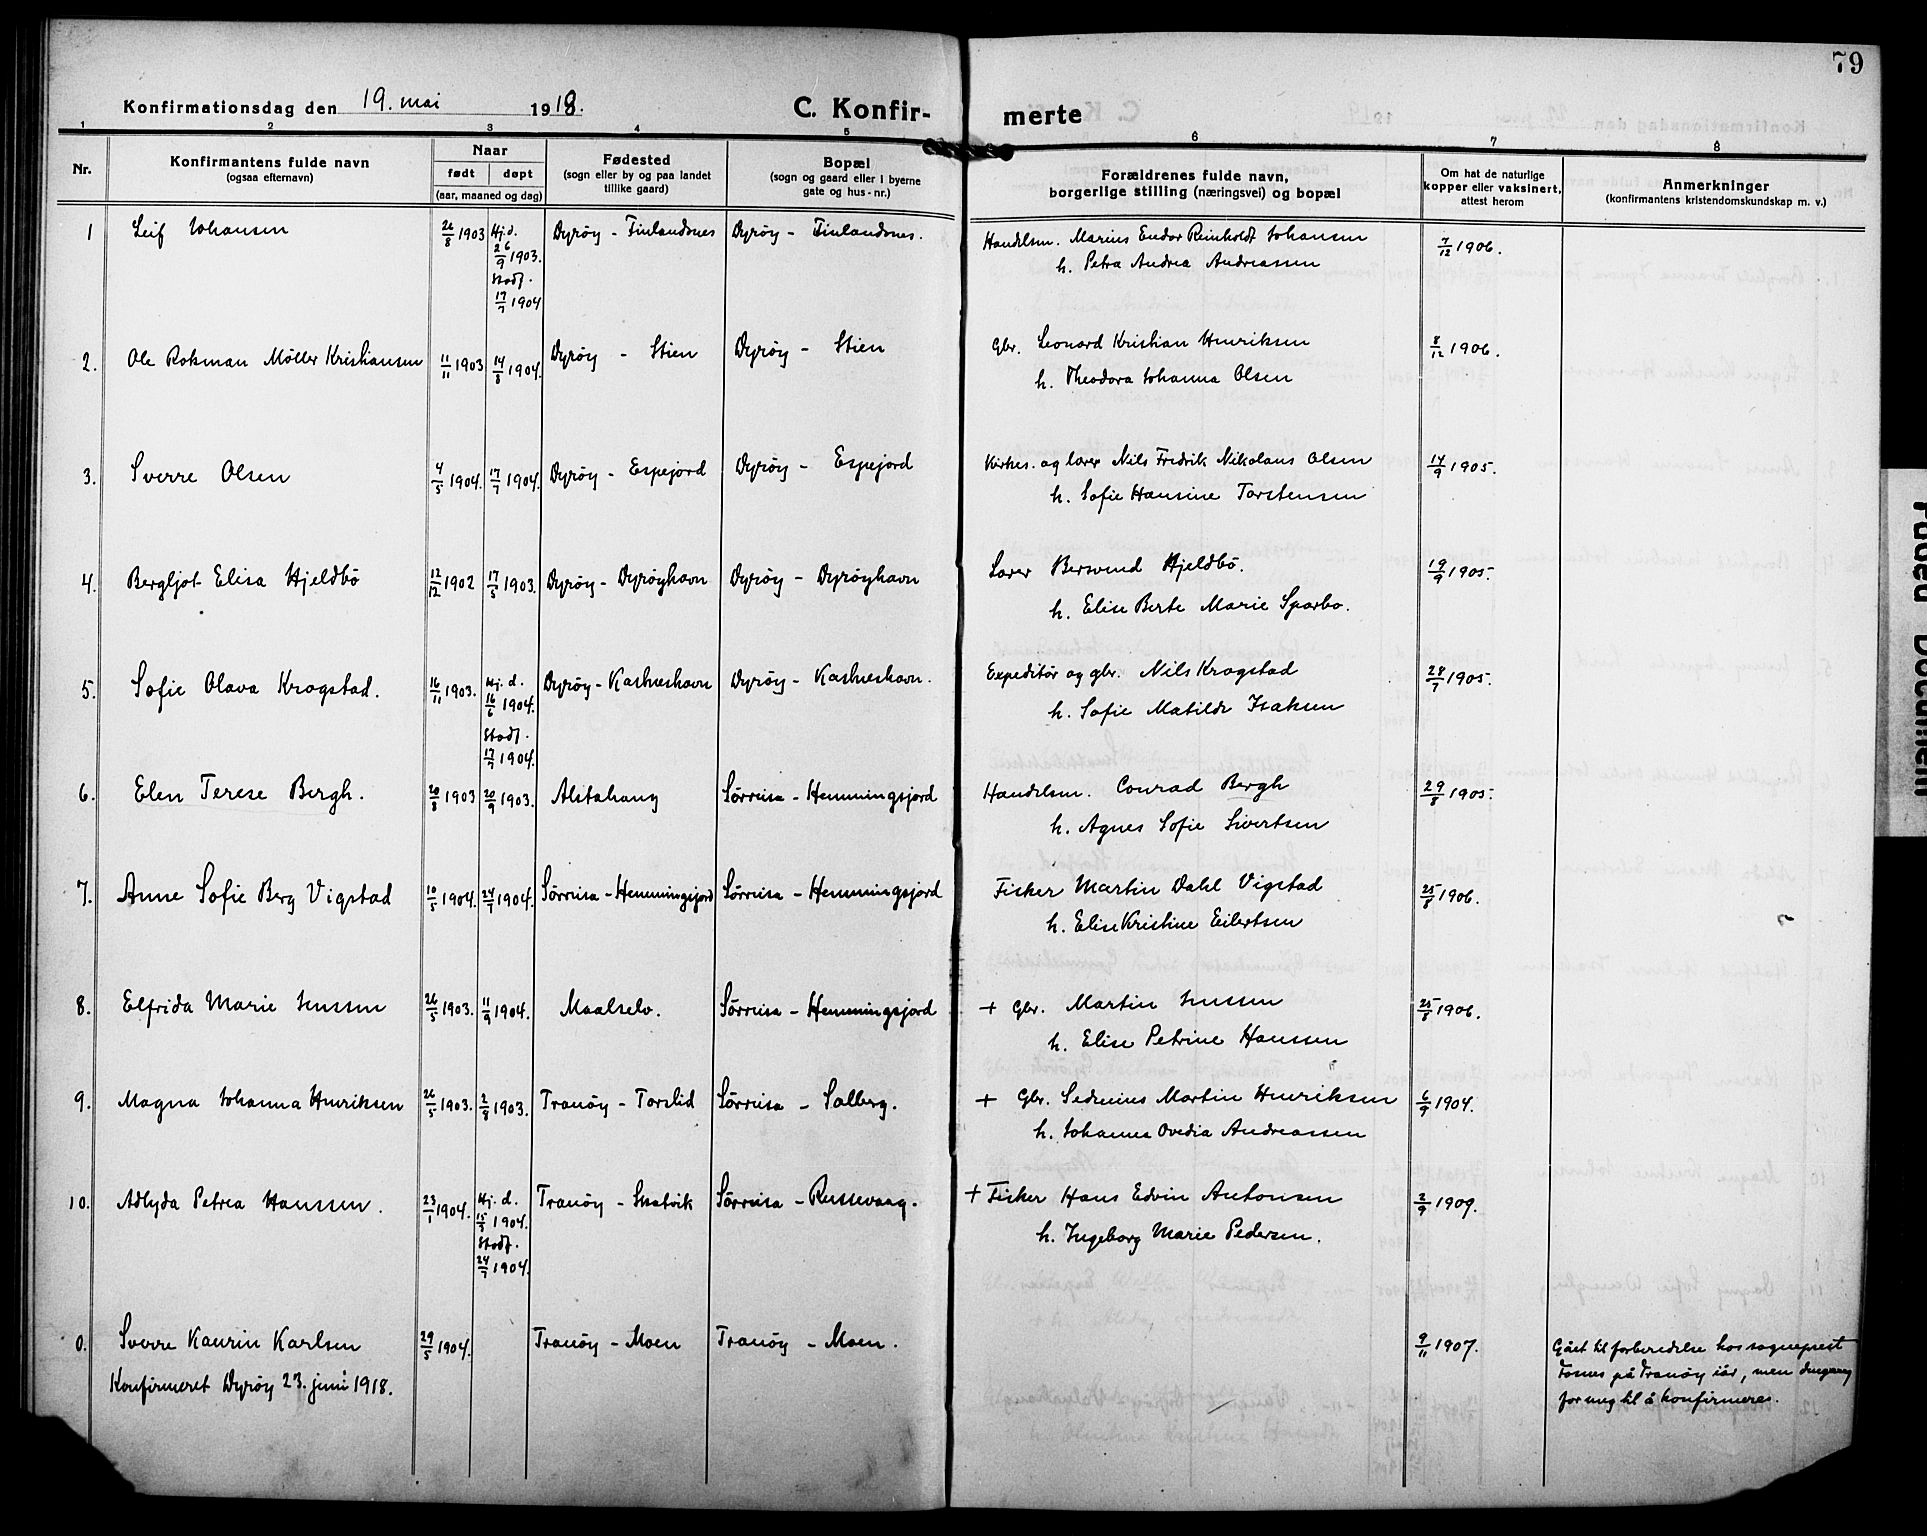 79
Konfirmationsdag den 19. mai 1918.
C. Konfir-
merte
1 2 3 4 5 6 7 8
Nr.
Konfirmantens fulde navn
(ogsaa efternavn)
Naar
født døpt
(aar, maaned og dag)
Fødested
(sogn eller by og paa landet
tillike gaard)
Bopæl
(sogn og gaard eller i byerne
gate og hus-nr.)
Forældrenes fulde navn,
borgerlige stilling (næringsvei) og bopæl
Om hat de naturlige
kopper eller vaksinert,
attest herom
Anmerkninger
(konfirmantens kristendomskundskap m. v.)
1 Leif Johansen 26/8 1903 Hj.d. 26/9 1903. Stadf. 17/7 1904 Dyrøy - Finlandsnes Dyrøy - Finlandsnes. Handelsm. Marius Endor Reinholdt Johansen 7/12 1906.
h. Petra Andrea Andreassen
2. Ole Rokman Møller Kristiansen 11/11 1903 14/8 1904. Dyrøy - Stien Dyrøy - Stien Gbr. Leonard Kristian Henriksen 8/12 1906.
h. Theodora Johanna Olsen
3. Sverre Olsen 4/5 1904. 17/7 1904. Dyrøy - Espejord Dyrøy - Espejord Kirkes. og lærer Nils Fredrik Nikolaus Olsen 14/9 1905.
h. Sofie Hansine Torstensen
4. Bergljot Elisa Hjeldbø 12/12 1902 17/5 1903. Dyrøy - Dyrøyhavn Dyrøy - Dyrøyhavn Lærer Bersvend Hjeldbø. 19/9 1905.
h. Elise Berte Marie Sparbo.
5. Sofie Olava Krogstad. 16/11 1903. Hj. d. 16/6 1904. Stadf. 17/7 1904. Dyrøy - Kastneshavn Dyrøy - Kastneshavn. Expeditør og gbr. Nils Krogstad 28/7 1905.
h. Sofie Matilde Isaksen
6. Elen Terese Bergh. 20/8 1903 20/9 1903. Alstahaug Sørreisa - Hemmingsjord Handelsm. Conrad Bergh 29/8 1905.
h. Agnes Sofie Sivertsen
7. Anne Sofie Berg Vigstad 10/5 1904. 24/7 1904. Sørreisa - Hemmingsjord Sørreisa - Hemmingsjord Fisker Martin Dahl Vigstad 25/8 1906.
h. Elise Kristine Eilertsen
8. Elfrida Marie Jenssen 26/5 1903. 11/9 1904. Maalselv. Sørreisa - Hemmingsjord + Gbr. Martin Jenssen 25/8 1906.
h. Elise Petrine Hanssen
9. Magna Johanna Henriksen 26/5 1903. 2/8 1903. Tranøy - Torslid Sørreisa - Solberg. + Gbr. Sedenius Martin Henriksen 6/9 1904.
h. Johanna Ovedia Andreassen
10. Adlyda Petrea Hanssen. 23/1 1904. Hj. d. 15/3 1904. Stadf. 24/7 1904. Tranøy - Skatvik Sørreisa - Russevaag. + Fisker Hans Edvin Antonsen 2/9 1909.
h. Ingeborg Marie Pedersen.
0. Sverre Kaurin Karlsen 29/5 1904. Tranøy - Moen Tranøy - Moen. 9/11 1907. Gået til forberedelse hos sogneprest
Konfirmeret Dyrøy 23. juni 1918. Fosnes på Tranøy iår, men dengang
for ung til å konfirmeres.
Faded Document